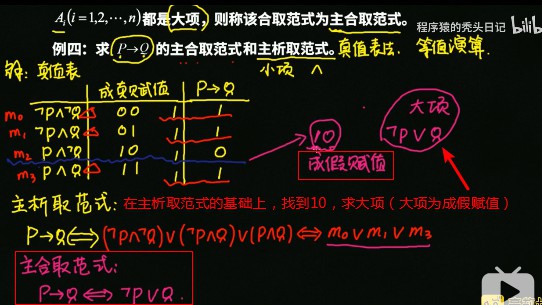 A_i(i=1,2,⋯,n)都是大项，则称该合取范式为主合取范式。
程序猿的秃头日记 bilibili
例四：求P→Q的主合取范式和主析取范式。真值表法、等值演算
小项 ∧
解：真值表
成真赋值 P→Q
m₀ ¬P∧¬Q 00 1 1
m₁ ¬P∧Q 01 1 1
m₂ P∧¬Q 10 0
m₃ P∧Q 11 1 1
10
成假赋值
大项
¬P∨Q
主析取范式：在主析取范式的基础上，找到10，求大项（大项为成假赋值）
P→Q⇔(¬P∧¬Q)∨(¬P∧Q)∨(P∧Q)⇔m₀∨m₁∨m₃
主合取范式：
P→Q⇔¬P∨Q.